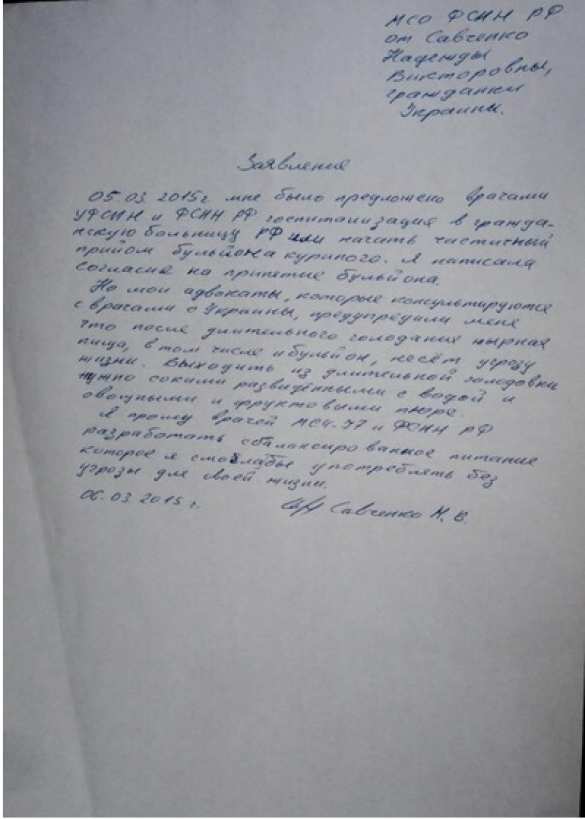 МСО ФСИН РФ
от Савченко
Надежды
Викторовны,
гражданки
Украины.
Заявление
05.03.2015г. мне было предложено врачами
УФСИН и ФСИН РФ госпитализация в гражда-
нскую больницу РФ или начать частичный
прийом бульйона куриного. Я написала
согласие на принятие бульйона.
Но мои адвокаты, которые консультируются
с врачами с Украины, предупредили меня
что после длительного голодания жирная
пища, в том числе и бульйон, несёт угрозу
жизни. Выходить из длительной голодовки
нужно соками разведёнными с водой и
овощными и фруктовыми пюре.
Я прошу врачей МСЧ-77 и ФСИН РФ
разработать сбалансированное питание
которое я смоглабы употреблять без
угрозы для своей жизни.
06.03.2015г. Савченко Н.В.